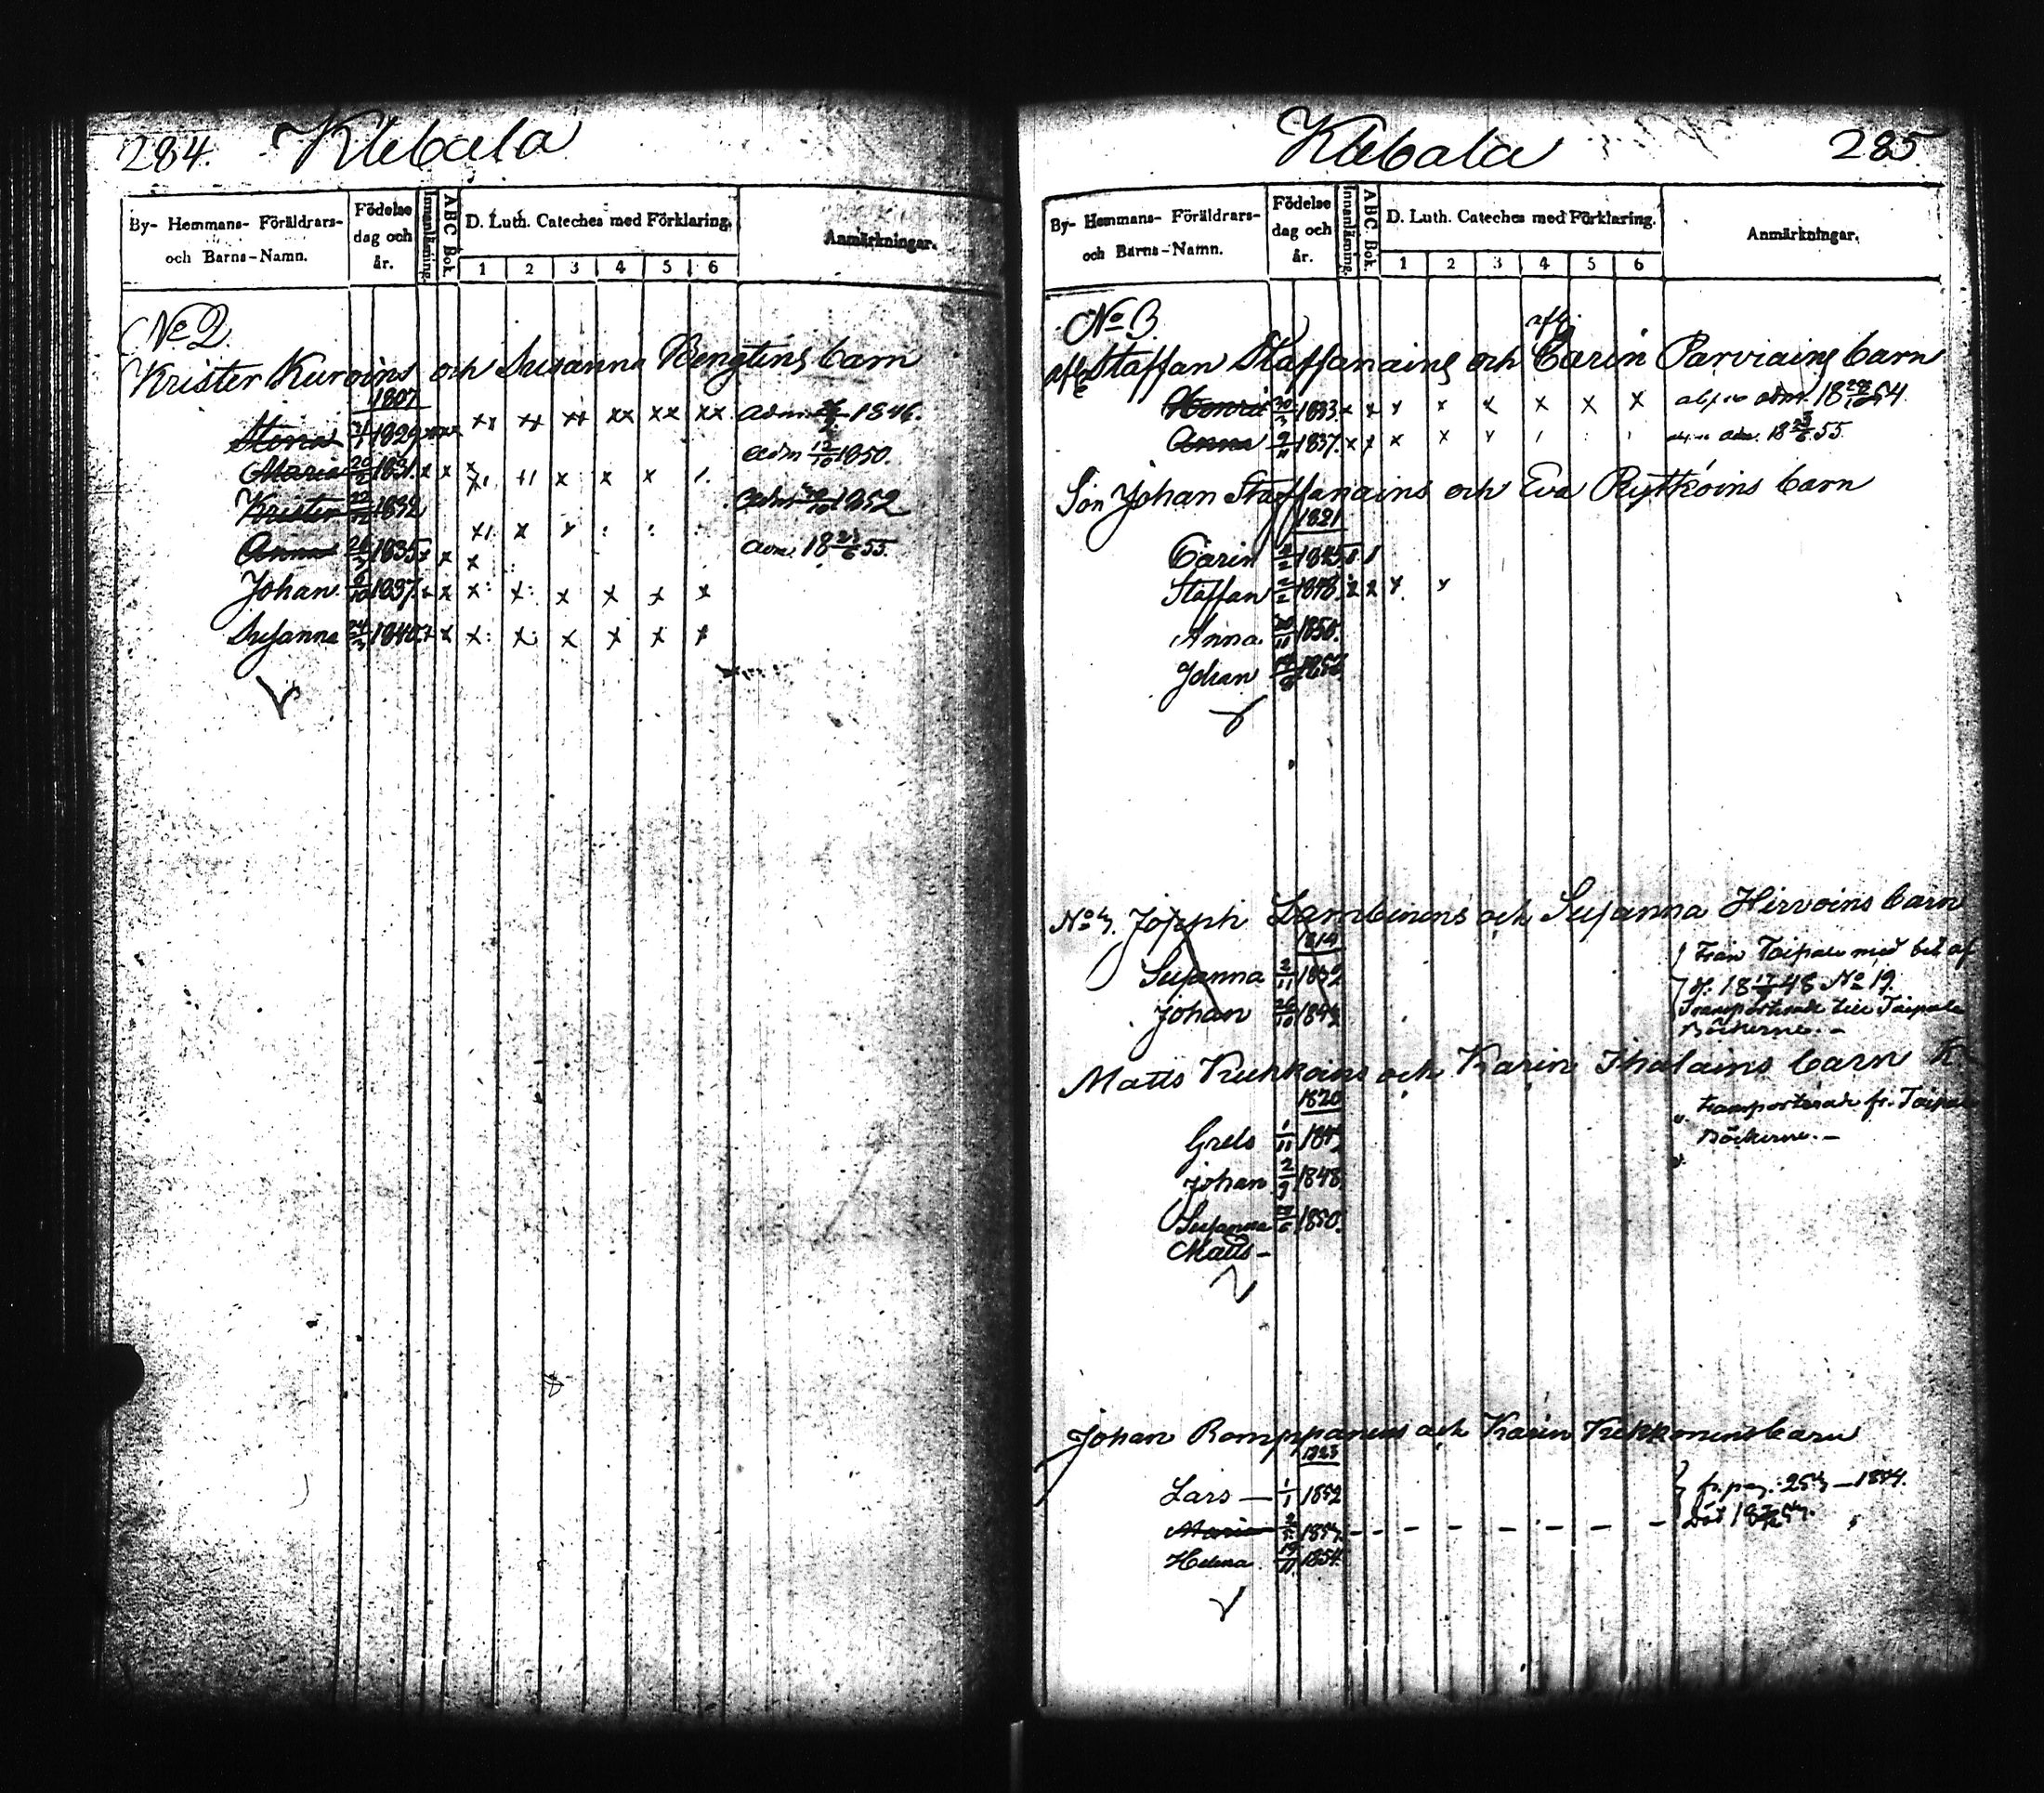 284. Klebala
By- Hemmans- Föräldrars- och Barns-Namn.
Födelse dag och år.
Innanläsning.
ABC Bok.
D. Luth. Cateches med Förklaring.
1 2 3 4 5 6
Anmärkningar.
No 2
Krister Kuroins och Susanna Bengtens barn
1807
Stena 1829 xx xx xx xx xx xx adm. 1846.
Maria 20/2 1831. x x x x x x adm 12/10 1850.
Krister 1832 adm 1852
Anna 1835 x x x adm. 18 55.
Johan 6/10 1837. x x x: x: x x x x
Susanna 24/3 1840. x x x: x: x x x x
Klebala 285
By- Hemmans- Föräldrars- och Barns-Namn.
Födelse dag och år.
Innanläsning.
ABC Bok.
D. Luth. Cateches med Förklaring.
1 2 3 4 5 6
Anmärkningar.
No 3
afl. Staffan Staffanains och afl. Carin Parviains barn
Henric 1833. x x x x x x x x adm. 18 54
Anna 9/11 1837. x x x x x adm. 18 55
Son Johan Staffanains och Eva Rytköins barn
1821
Carin 1845
Staffan 2/2 1848. x x x x
Anna 1850.
Johan 1852
No 4. Joseph Lambinens och Susanna Hirvoins barn
1814
Susanna 2/11 1839
Johan 26/10 1842
Från Taipale med bet af
18 48 No 19.
Transporterade till Taipale
Böckerne. -
Matts Kukkoins och Karin Ihalains barn
1820
transporterade fr. Taipale
Böckerne. -
Greta 1/11
Johan 2/9 1848
Susanna 1850.
Matts -
Johan Romppanens och Karin Kekkonens barn
1823
Lars - 1/1 1852 fr. pag. 254 - 1854.
Maria - - - - - - - död
Helena 19/11 1854.